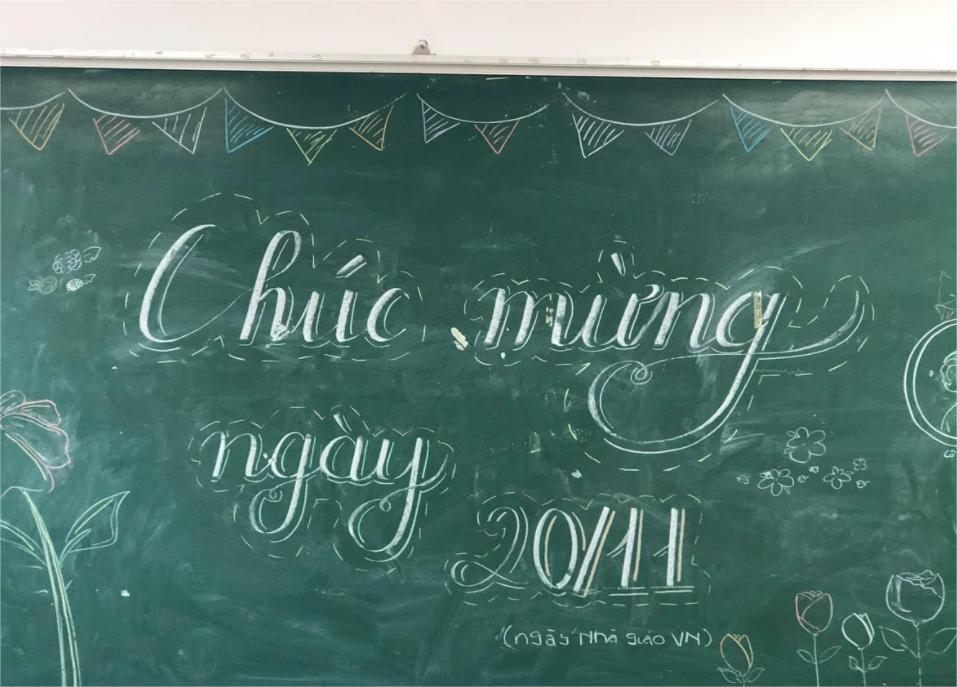 Chúc mừng
ngày
20/11
(ngày Nhà giáo VN)